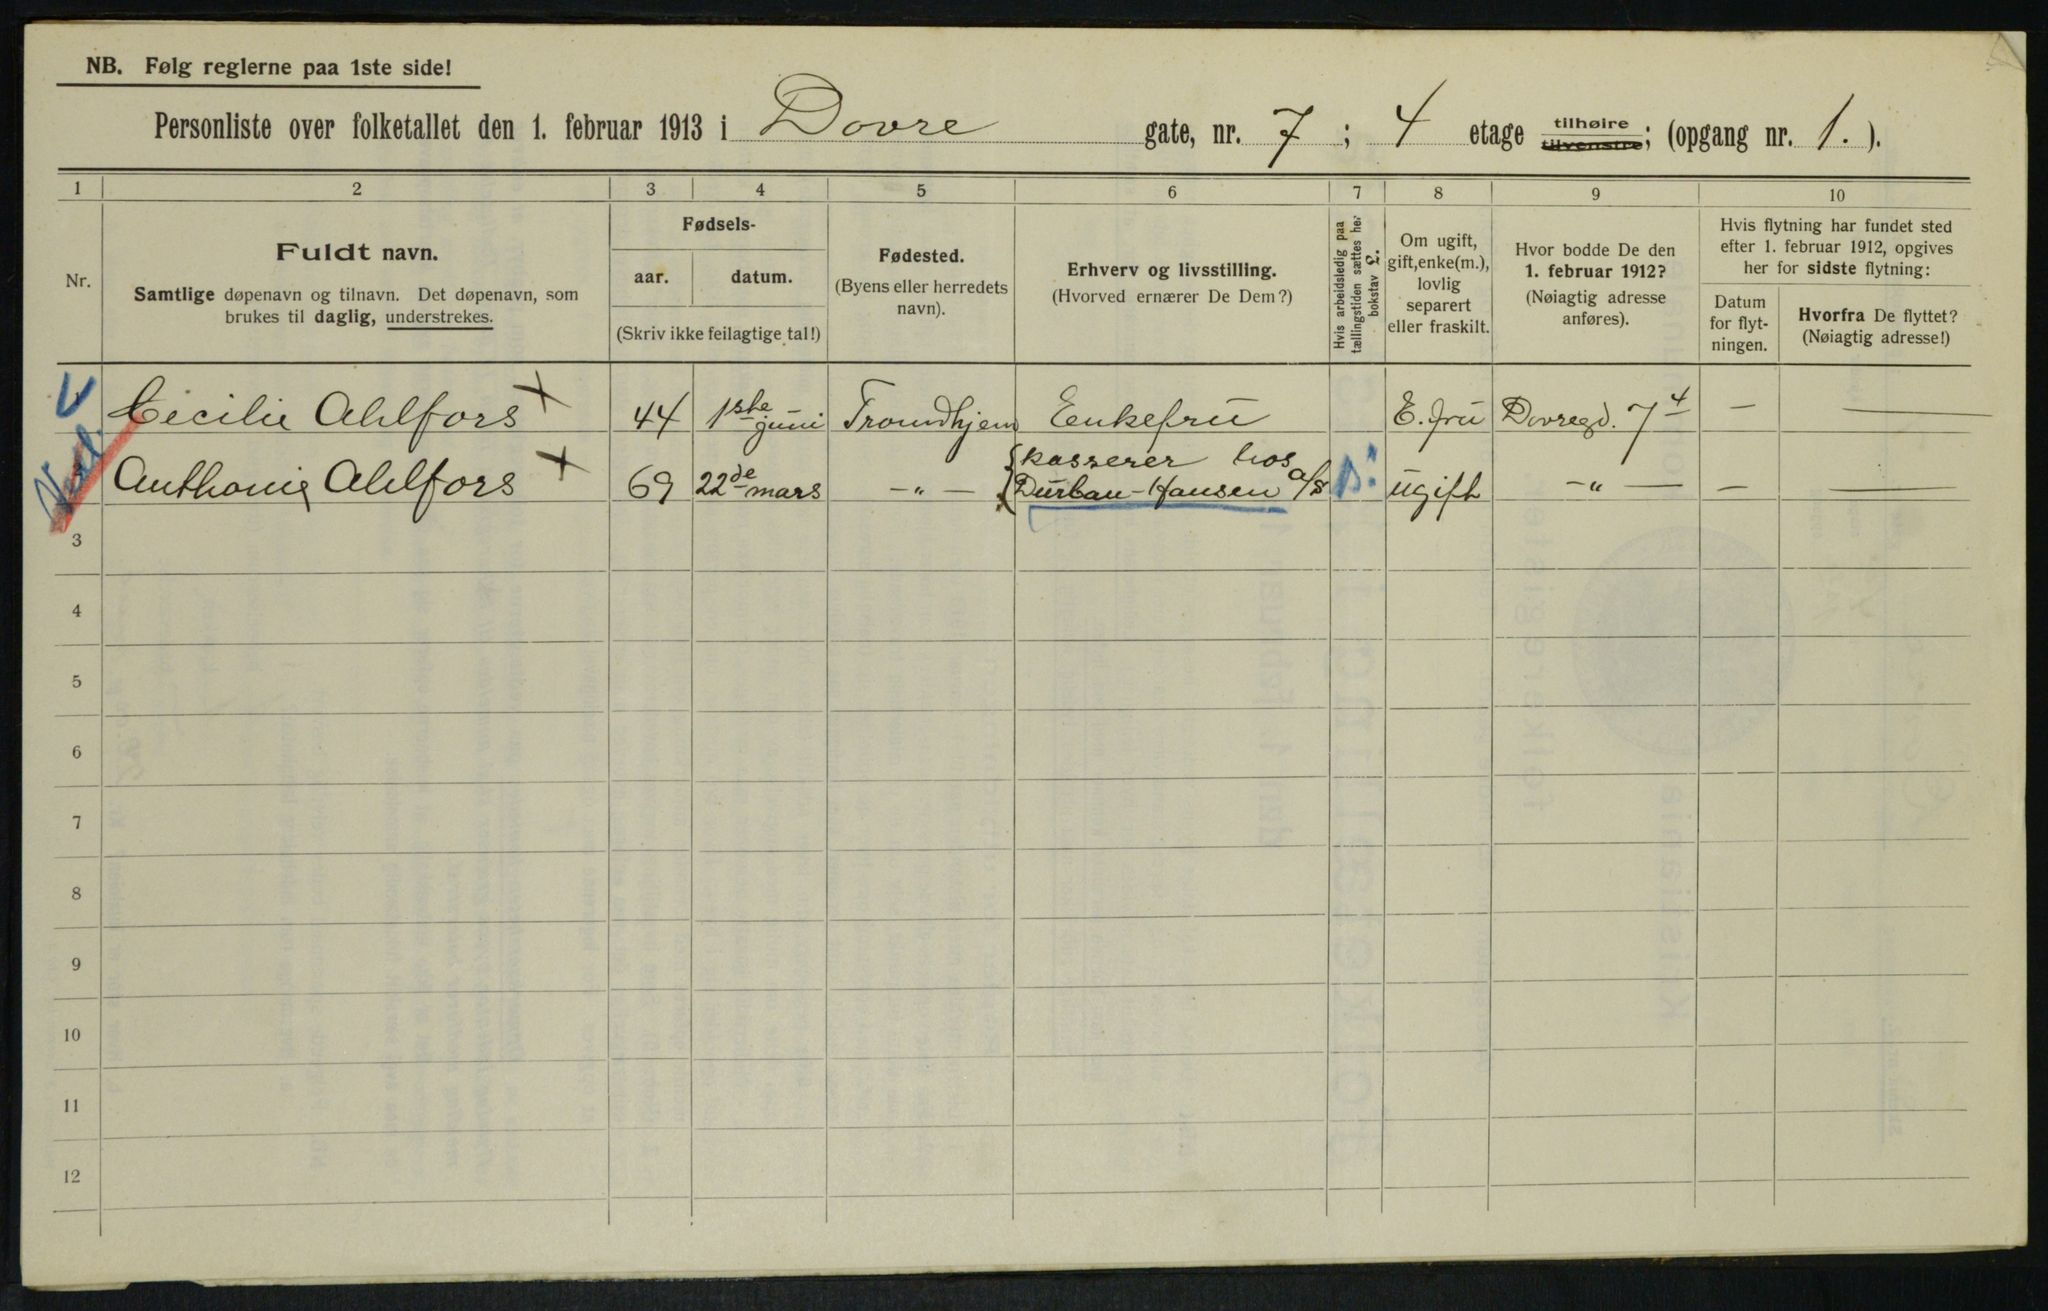 NB. Følg reglerne paa 1ste side!
Personliste over folketallet den 1. februar 1913 i Dovre gate, nr. 7 ; 4 etage tilhøire tilvenstre; (opgang nr. 1. ).
1 2 3 4 5 6 7 8 9 10
Nr.
Fuldt navn.
Samtlige døpenavn og tilnavn. Det døpenavn, som
brukes til daglig, understrekes.
Fødsels-
aar. datum.
(Skriv ikke feilagtige tal!)
Fødested.
(Byens eller herredets
navn).
Erhverv og livsstilling.
(Hvorved ernærer De Dem?)
Hvis arbeidsledig paa
tællingstiden sættes her
bokstav L.
Om ugift,
gift, enke(m.),
lovlig
separert
eller fraskilt.
Hvor bodde De den
1. februar 1912?
(Nøiagtig adresse
anføres).
Hvis flytning har fundet sted
efter 1. februar 1912, opgives
her for sidste flytning:
Datum
for flyt-
ningen.
Hvorfra De flyttet?
(Nøiagtig adresse!)
Cecilie Ahlfors 44 1ste juni Trondhjem Enkefru E. fru Dovregd. 7 4 — —
Anthonie Ahlfors 69 22de mars —„— kasserer hos
Durban-Hansen a/s ugift —„— — —
3
4
5
6
7
8
9
10
11
12